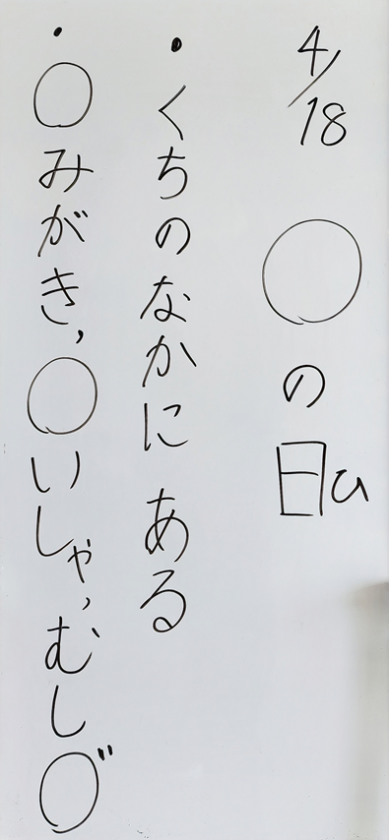 4/18 ○の日ひ
・くちのなかに ある
・○みがき,○いしゃ,むし○゛